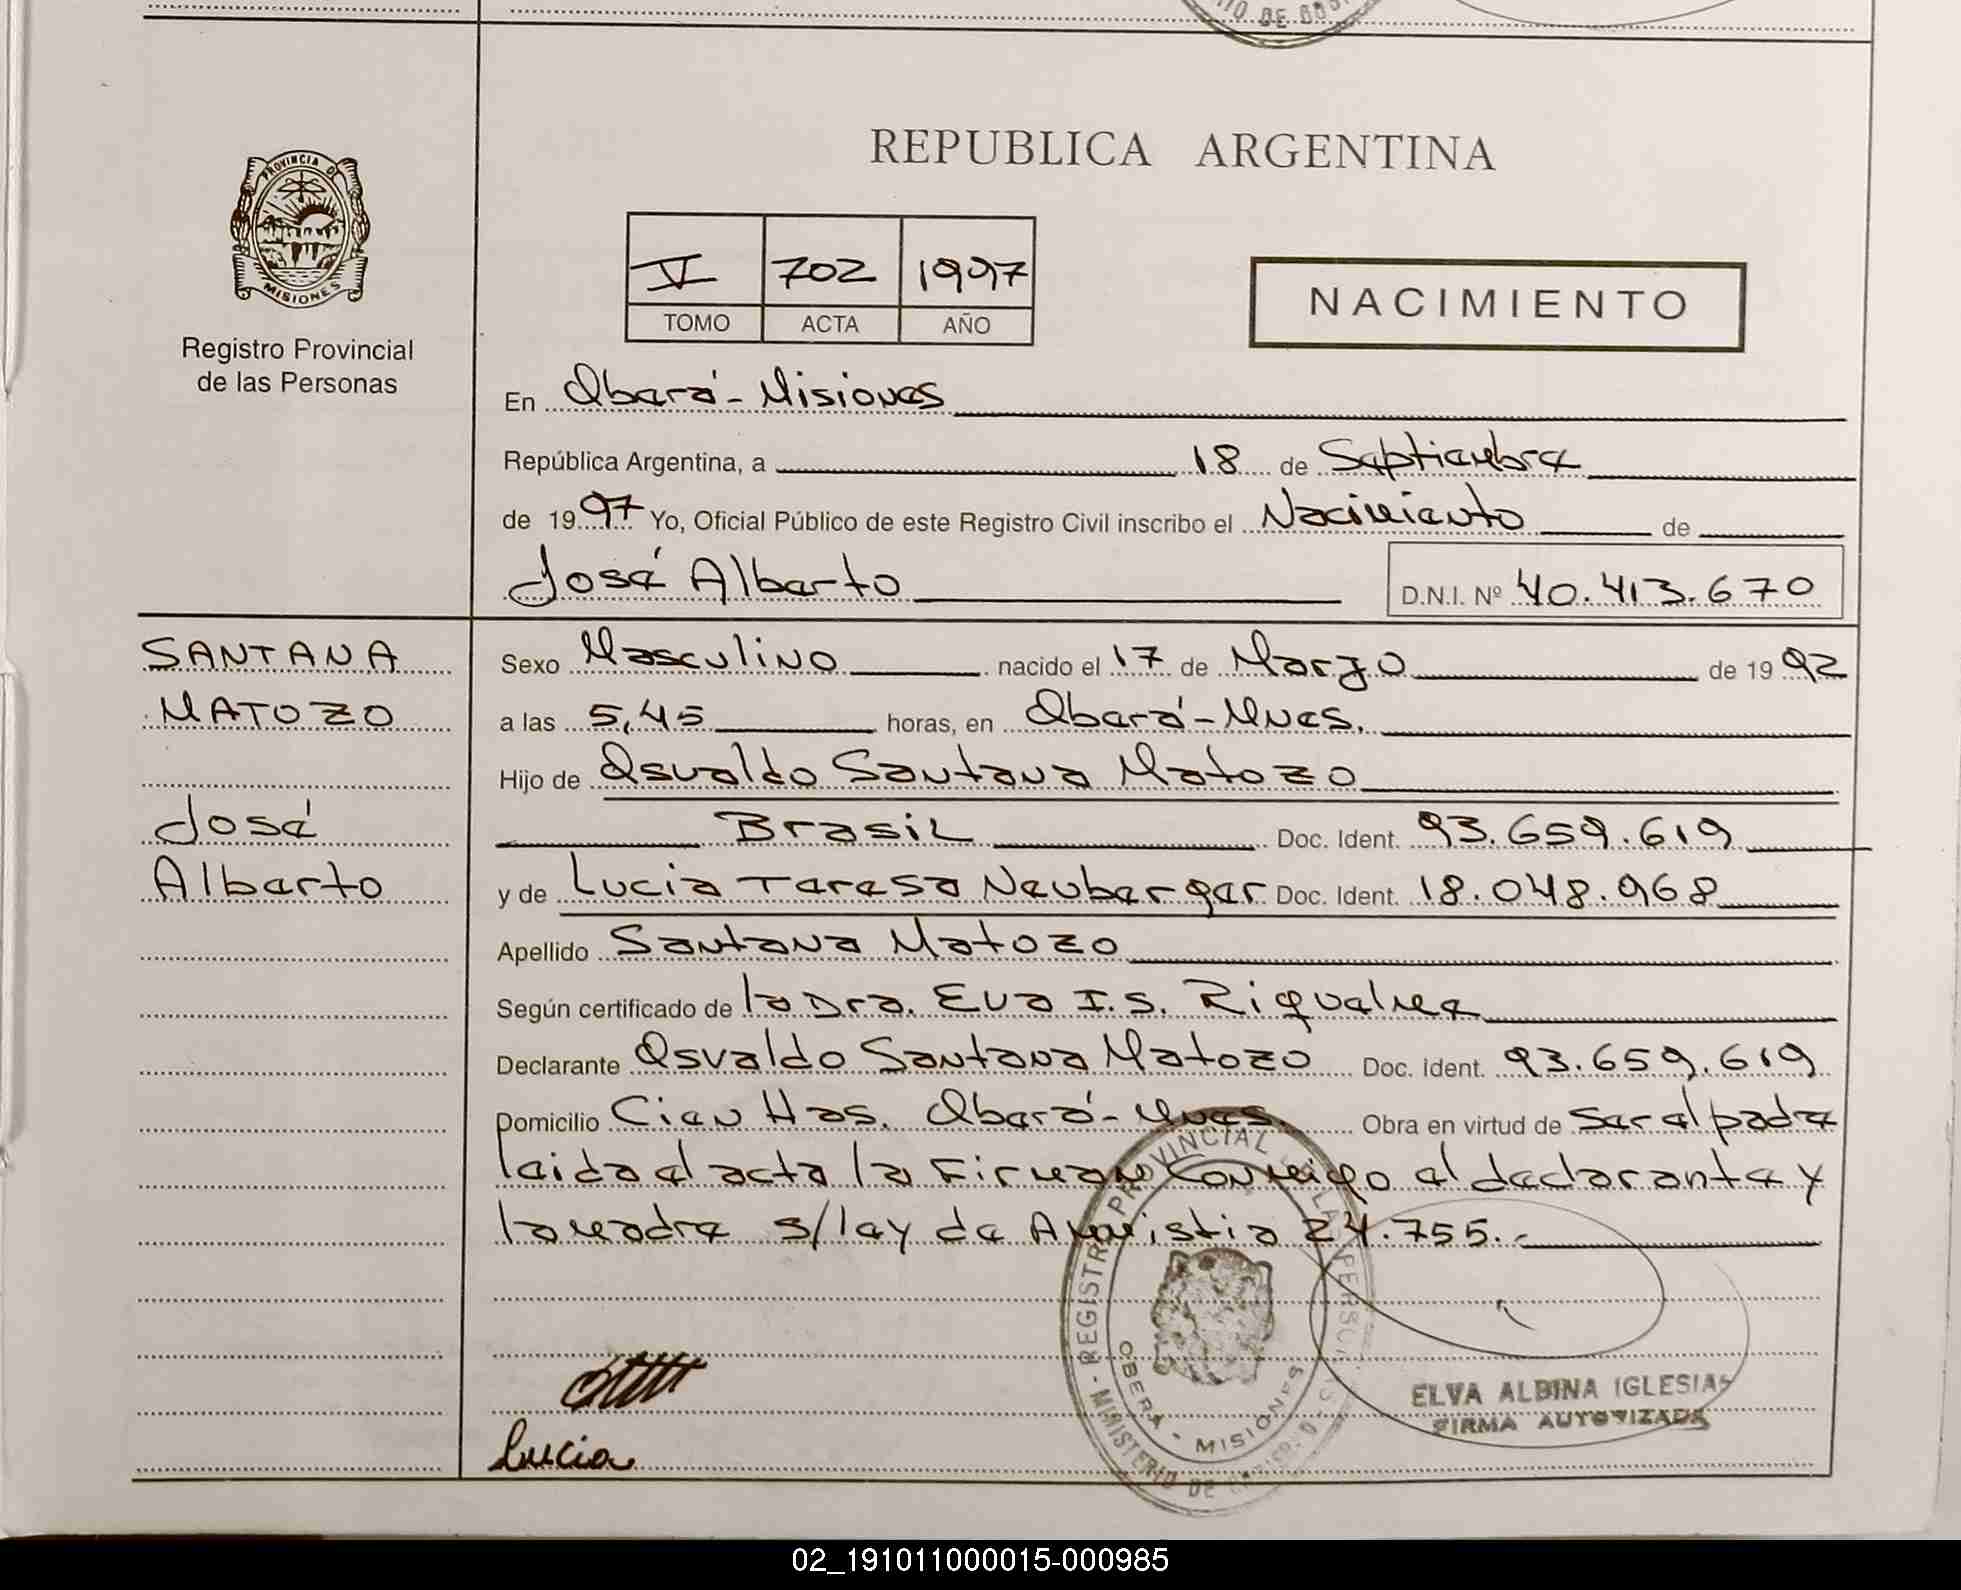 REPUBLICA ARGENTINA
PROVINCIA DE
MISIONES
Registro Provincial
de las Personas
V 702 1997
TOMO ACTA AÑO
NACIMIENTO
En Oberá - Misiones
República Argentina, a 18 de Septiembre
de 1997 Yo, Oficial Público de este Registro Civil inscribo el Nacimiento de
José Alberto D.N.I. Nº 40.413.670
SANTANA
MATOZO
José
Alberto
Sexo Masculino nacido el 17 de Marzo de 1992
a las 5,45 horas, en Oberá - Mnes.
Hijo de Osvaldo Santana Matozo
Brasil Doc. Ident. 93.659.619
y de Lucia Teresa Neuberger Doc. Ident. 18.048.968
Apellido Santana Matozo
Según certificado de la Dra. Eva I.S. Riquelme
Declarante Osvaldo Santana Matozo Doc. ident. 93.659.619
Domicilio Cien Has. Oberá - Mnes. Obra en virtud de ser el padre
leida el acta la Firman Conmigo el declarante y
la madre s/ley de Amnistia 24.755.-
Lucia
REGISTRO PROVINCIAL DE LAS PERSONAS
MINISTERIO DE
OBERA - MISIONES
ELVA ALBINA IGLESIAS
FIRMA AUTORIZADA
02_191011000015-000985